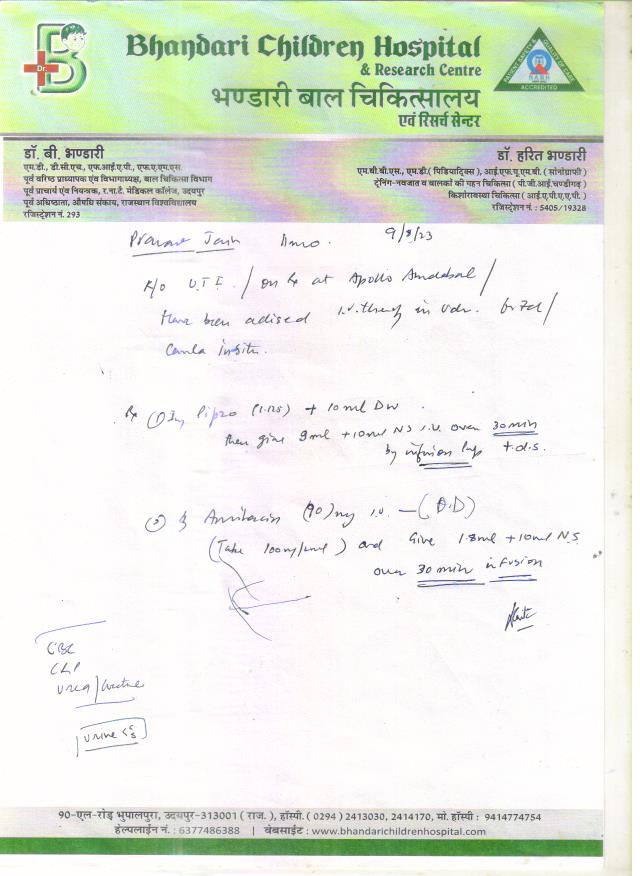 Dr.
B
Bhandari Children Hospital
& Research Centre
भण्डारी बाल चिकित्सालय
एवं रिसर्च सेन्टर
PATIENT SAFETY & QUALITY OF CARE
NABH
ACCREDITED
डॉ. बी. भण्डारी
एम.डी., डी.सी.एच., एफ.आई.ए.पी., एफ.ए.एम.एस.
पूर्व वरिष्ठ प्राध्यापक एंव विभागाध्यक्ष, बाल चिकित्सा विभाग
पूर्व प्राचार्य एंव नियन्त्रक, र.ना.टै. मेडिकल कॉलेज, उदयपुर
पूर्व अधिष्ठाता, औषधि संकाय, राजस्थान विश्वविद्यालय
रजिस्ट्रेशन नं. 293
डॉ. हरित भण्डारी
एम.बी.बी.एस., एम.डी.( पिडियाट्रिक्स ), आई.एफ.यू.एम.बी. ( सोनोग्राफी )
ट्रेनिंग-नवजात व बालकों की गहन चिकित्सा ( पी.जी.आई.चण्डीगढ़ )
किशोरावस्था चिकित्सा ( आई.ए.पी.ए.ए.पी. )
रजिस्ट्रेशन नं. : 5405/19328
Jain 9/3/23
U.T.I. / on Rx at Apollo /
Have been adised I.V. therapy in
Canula insitu.
Rx (1) Inj Pipzo (1.125) + 10 ml DW
then give 9ml + 10ml NS I.V. over 30 min
by infusion pump t.d.s.
(2) Amikacin (90) mg i.v. — (O.D)
(Take 100mg/ml) and Give 1.8ml + 10ml N.S.
over 30 min infusion
CBC
CRP
Urea/
Urine C/S
90-एल-रोड़ भुपालपुरा, उदयपुर-313001 ( राज. ), हॉस्पी. ( 0294 ) 2413030, 2414170, मो. हॉस्पी : 9414774754
हेल्पलाईन नं. : 6377486388 | वेबसाईट : www.bhandarichildrenhospital.com